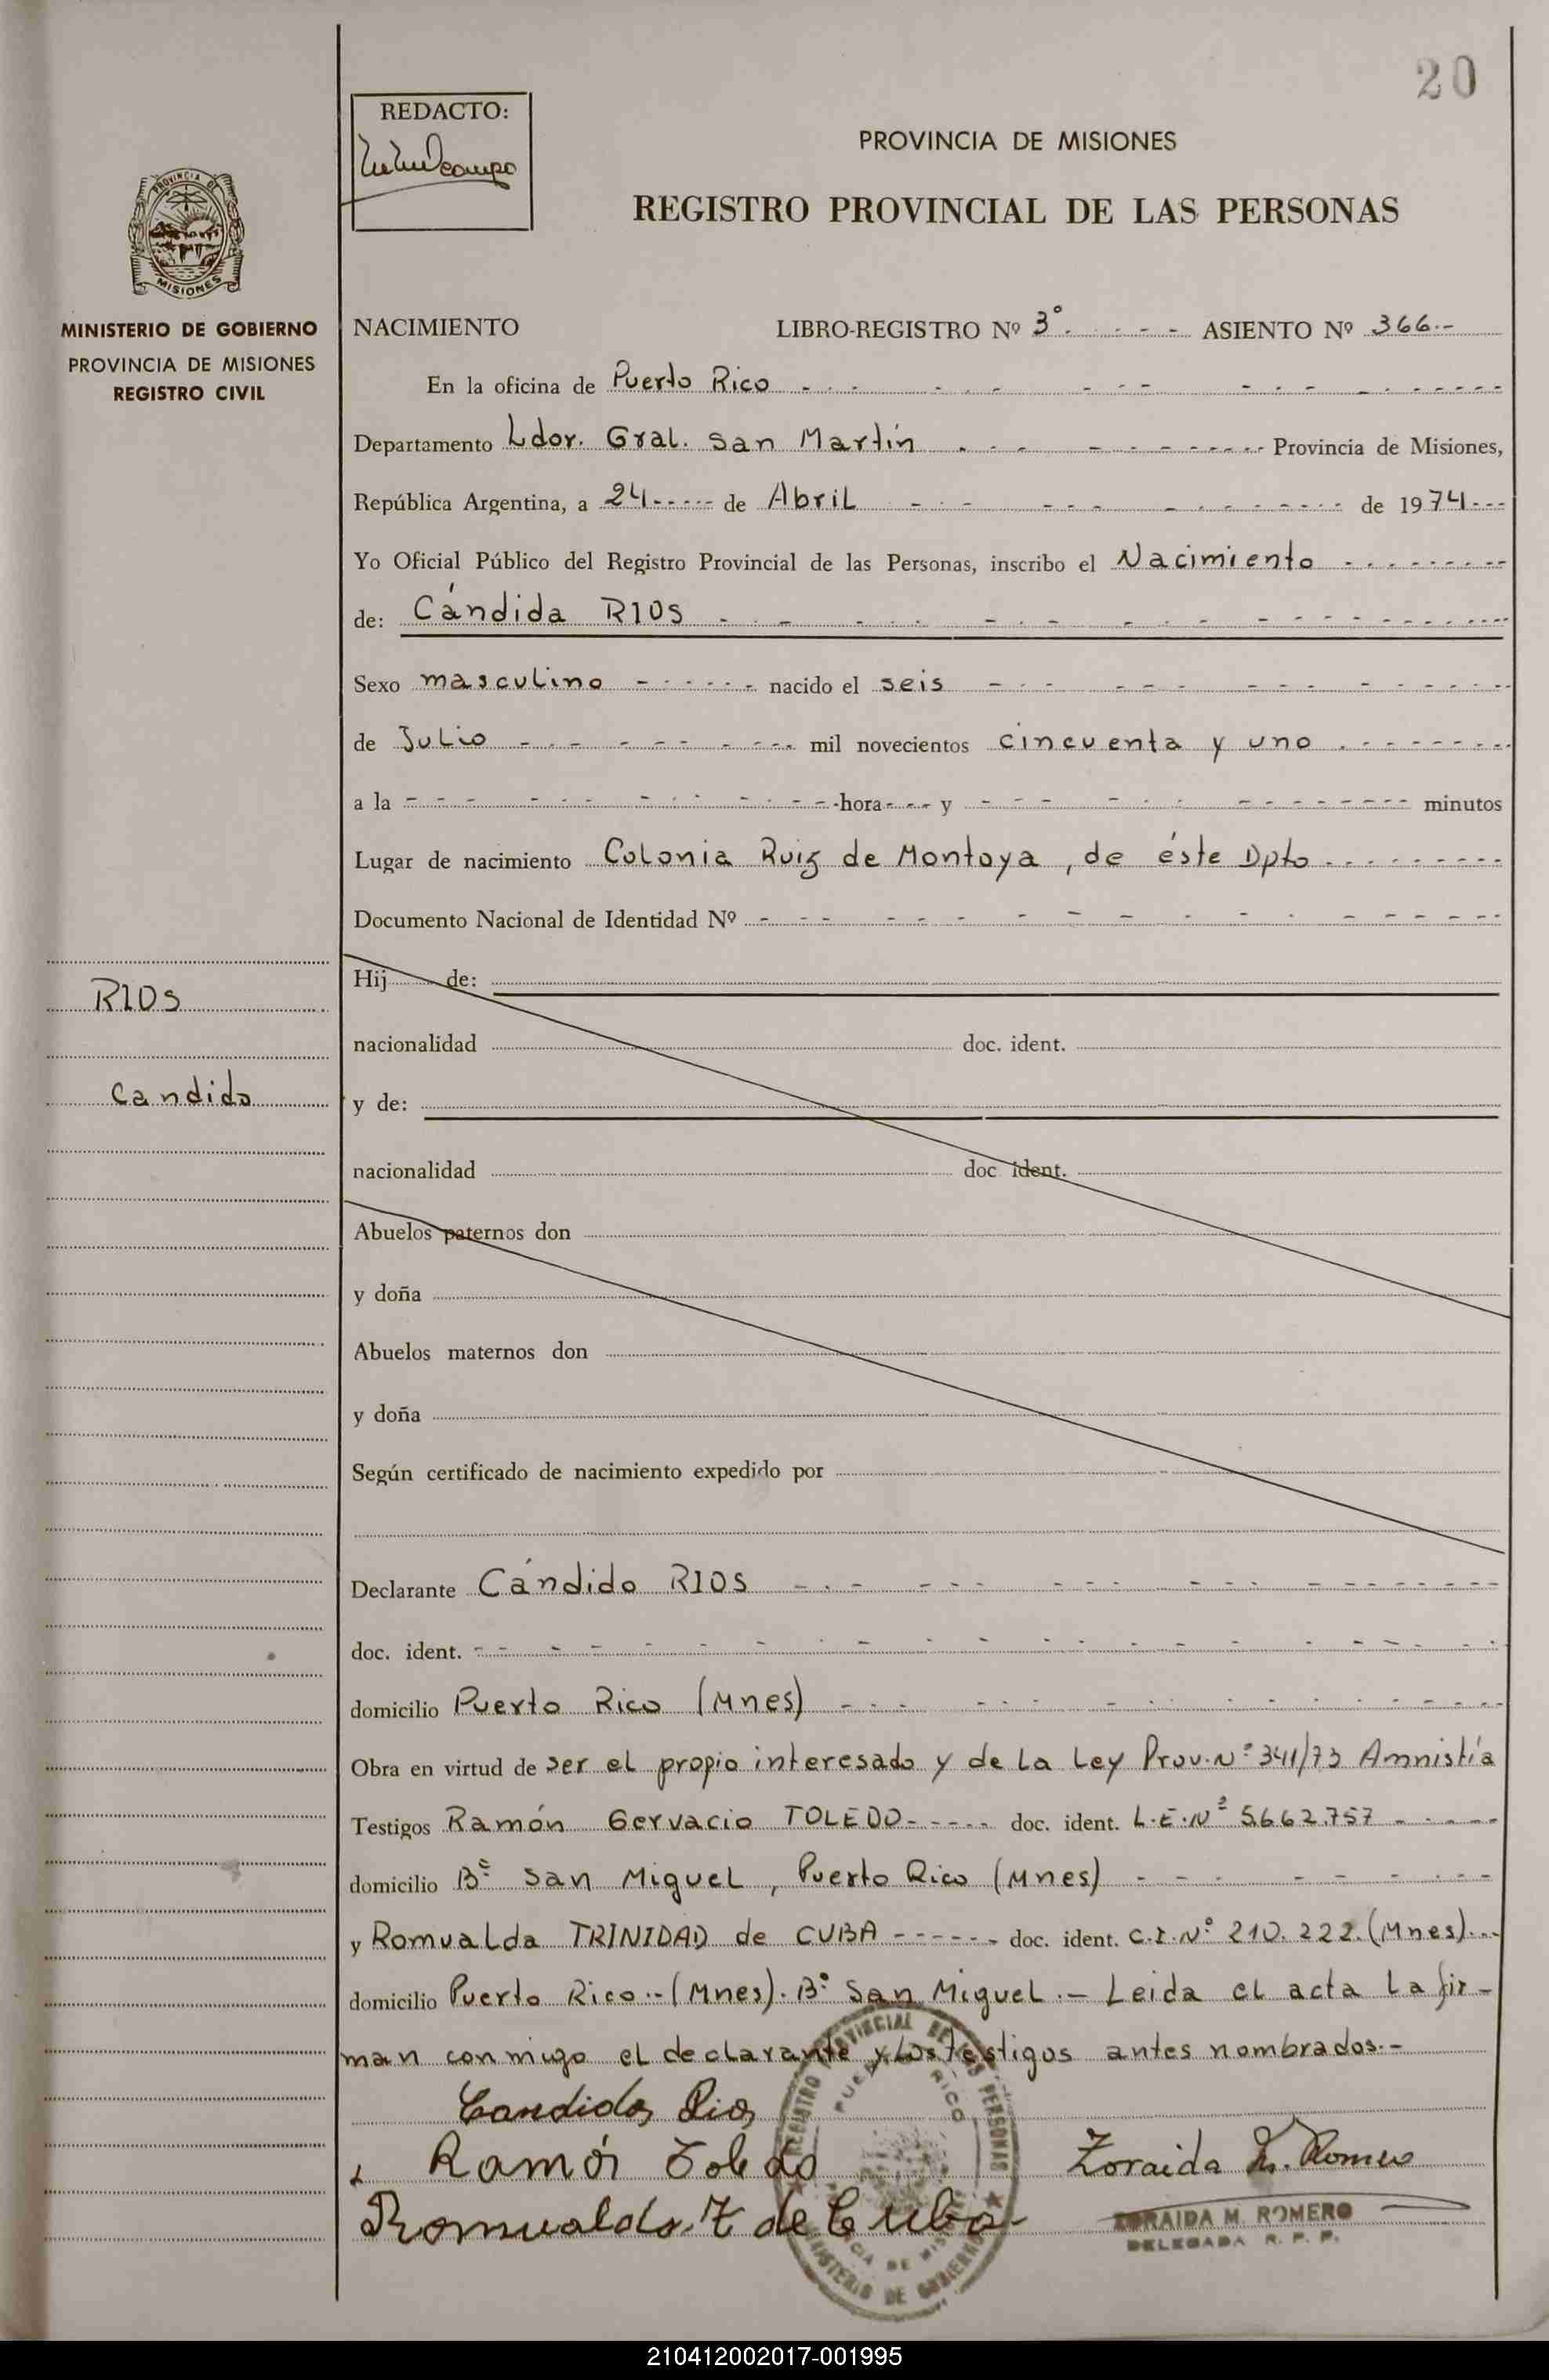 20
REDACTO:
PROVINCIA DE MISIONES
REGISTRO PROVINCIAL DE LAS PERSONAS
MISIONES
MINISTERIO DE GOBIERNO
PROVINCIA DE MISIONES
REGISTRO CIVIL
NACIMIENTO LIBRO-REGISTRO Nº 3º. - - - ASIENTO Nº 366.-
En la oficina de Puerto Rico
Departamento Ldor. Gral. San Martín Provincia de Misiones,
República Argentina, a 24 de Abril de 1974
Yo Oficial Público del Registro Provincial de las Personas, inscribo el Nacimiento
de: Cándida RIOS
Sexo masculino nacido el seis
de Julio mil novecientos cincuenta y uno
a la hora y minutos
Lugar de nacimiento Colonia Ruiz de Montoya, de éste Dpto
Documento Nacional de Identidad Nº
Hij de:
RIOS
nacionalidad doc. ident.
Candido
y de:
nacionalidad doc ident.
Abuelos paternos don
y doña
Abuelos maternos don
y doña
Según certificado de nacimiento expedido por
Declarante Cándido RIOS
doc. ident.
domicilio Puerto Rico (Mnes)
Obra en virtud de ser el propio interesado y de la Ley Prov. Nº 341/73 Amnistía
Testigos Ramón Gervacio TOLEDO doc. ident. L.E.Nº 5.662.757
domicilio Bº San Miguel, Puerto Rico (Mnes)
y Romualda TRINIDAD de CUBA doc. ident. C.I.Nº 210.222.(Mnes)
domicilio Puerto Rico.-(Mnes). Bº San Miguel.- Leida el acta la fir-
man conmigo el declarante y los testigos antes nombrados.-
Candido Rios
Ramón Toledo
Zoraida M. Romero
Romualda T de Cuba
ZORAIDA M. ROMERO
DELEGADA R. P. P.
REGISTRO PROVINCIAL DE LAS PERSONAS
PUERTO RICO
PROVINCIA DE MISIONES
MINISTERIO DE GOBIERNO
210412002017-001995